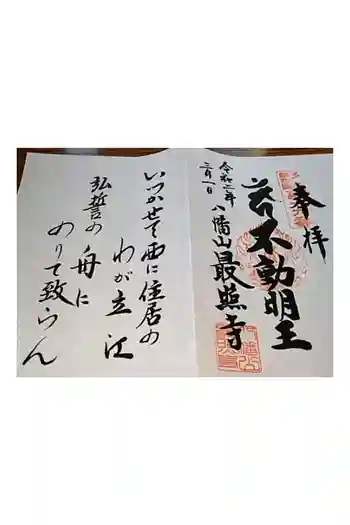 奉拝
不動明王
八幡山最照寺
令和二年
三月一日
いつかせて西に住居の
わが立江
弘誓の舟に
のりて致らん